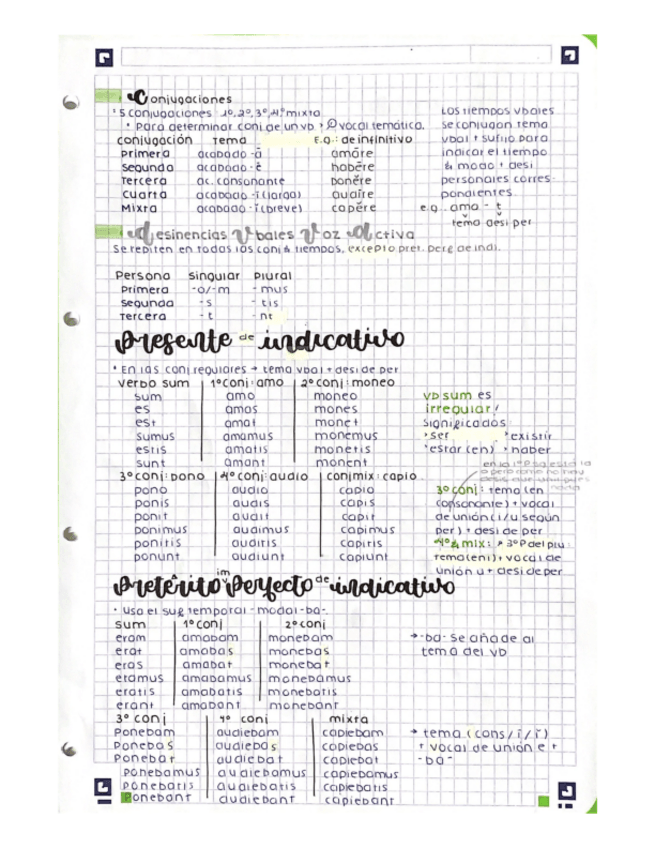 Conjugaciones
· 5 conjugaciones: 1º, 2º, 3º, 4º, mixta
Los tiempos vbales
· Para determinar conj de un vb → vocal temática.
se conjugan tema
conjugación tema E.g.: de infinitivo
vbal + sufijo para
Primera acabado -ā amāre
indicar el tiempo
Segunda acabado -ē habēre
& modo + desi
Tercera ac. consonante ponĕre
personales corres-
Cuarta acabado -ī (larga) audīre
pondientes.
Mixta acabado -ĭ (breve) capĕre
e.g. ama - t
tema desi per
desinencias Vbales Voz Activa
Se repiten en todas las conj & tiempos, excepto pret. perf de indi.
Persona Singular Plural
Primera -o/-m -mus
Segunda -s -tis
Tercera -t -nt
Presente de indicativo
· En las conj regulares → tema vbal + desi de per
verbo sum 1º conj: amo 2º conj: moneo
sum amo moneo
es amas mones
est amat monet
sumus amamus monemus
estis amatis monetis
sunt amant monent
vb sum es
irregular!
Significados
·ser ·existir
·estar (en) ·haber
3º conj: pono 4º conj: audio conj mix: capio
pono audio capio
ponis audis capis
ponit audit capit
ponimus audimus capimus
ponitis auditis capitis
ponunt audiunt capiunt
3º conj: tema (en
consonante) + vocal
de unión (i/u según
per) + desi de per
4º & mix: 3º P del plu:
tema (en i) + vocal de
unión u + desi de per
Pretérito imperfecto de indicativo
· Usa el suf temporal-modal -ba-.
sum 1º conj 2º conj
eram amabam monebam
erat amabas monebas
eras amabat monebat
eramus amabamus monebamus
eratis amabatis monebatis
erant amabant monebant
→ -ba- se añade al
tema del vb
3º conj 4º conj mixta
Ponebam audiebam capiebam
Ponebas audiebas capiebas
Ponebat audiebat capiebat
Ponebamus audiebamus capiebamus
Ponebatis audiebatis capiebatis
Ponebant audiebant capiebant
→ tema (cons/ī/ĭ)
+ vocal de unión e +
-ba-